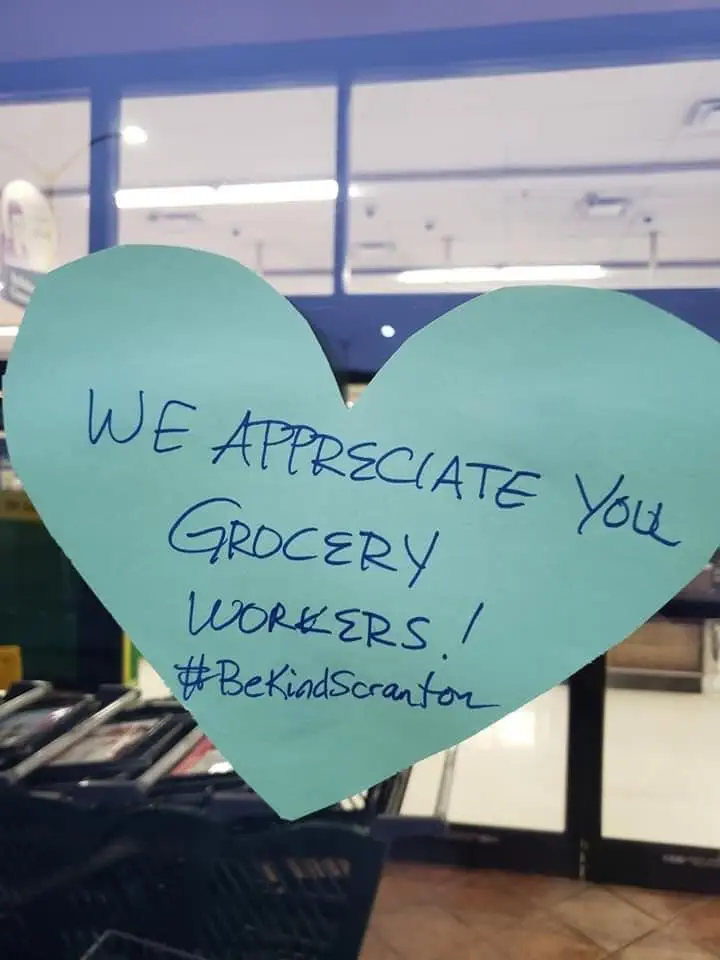 WE APPRECIATE YOU
GROCERY
WORKERS!
#BeKindScranton